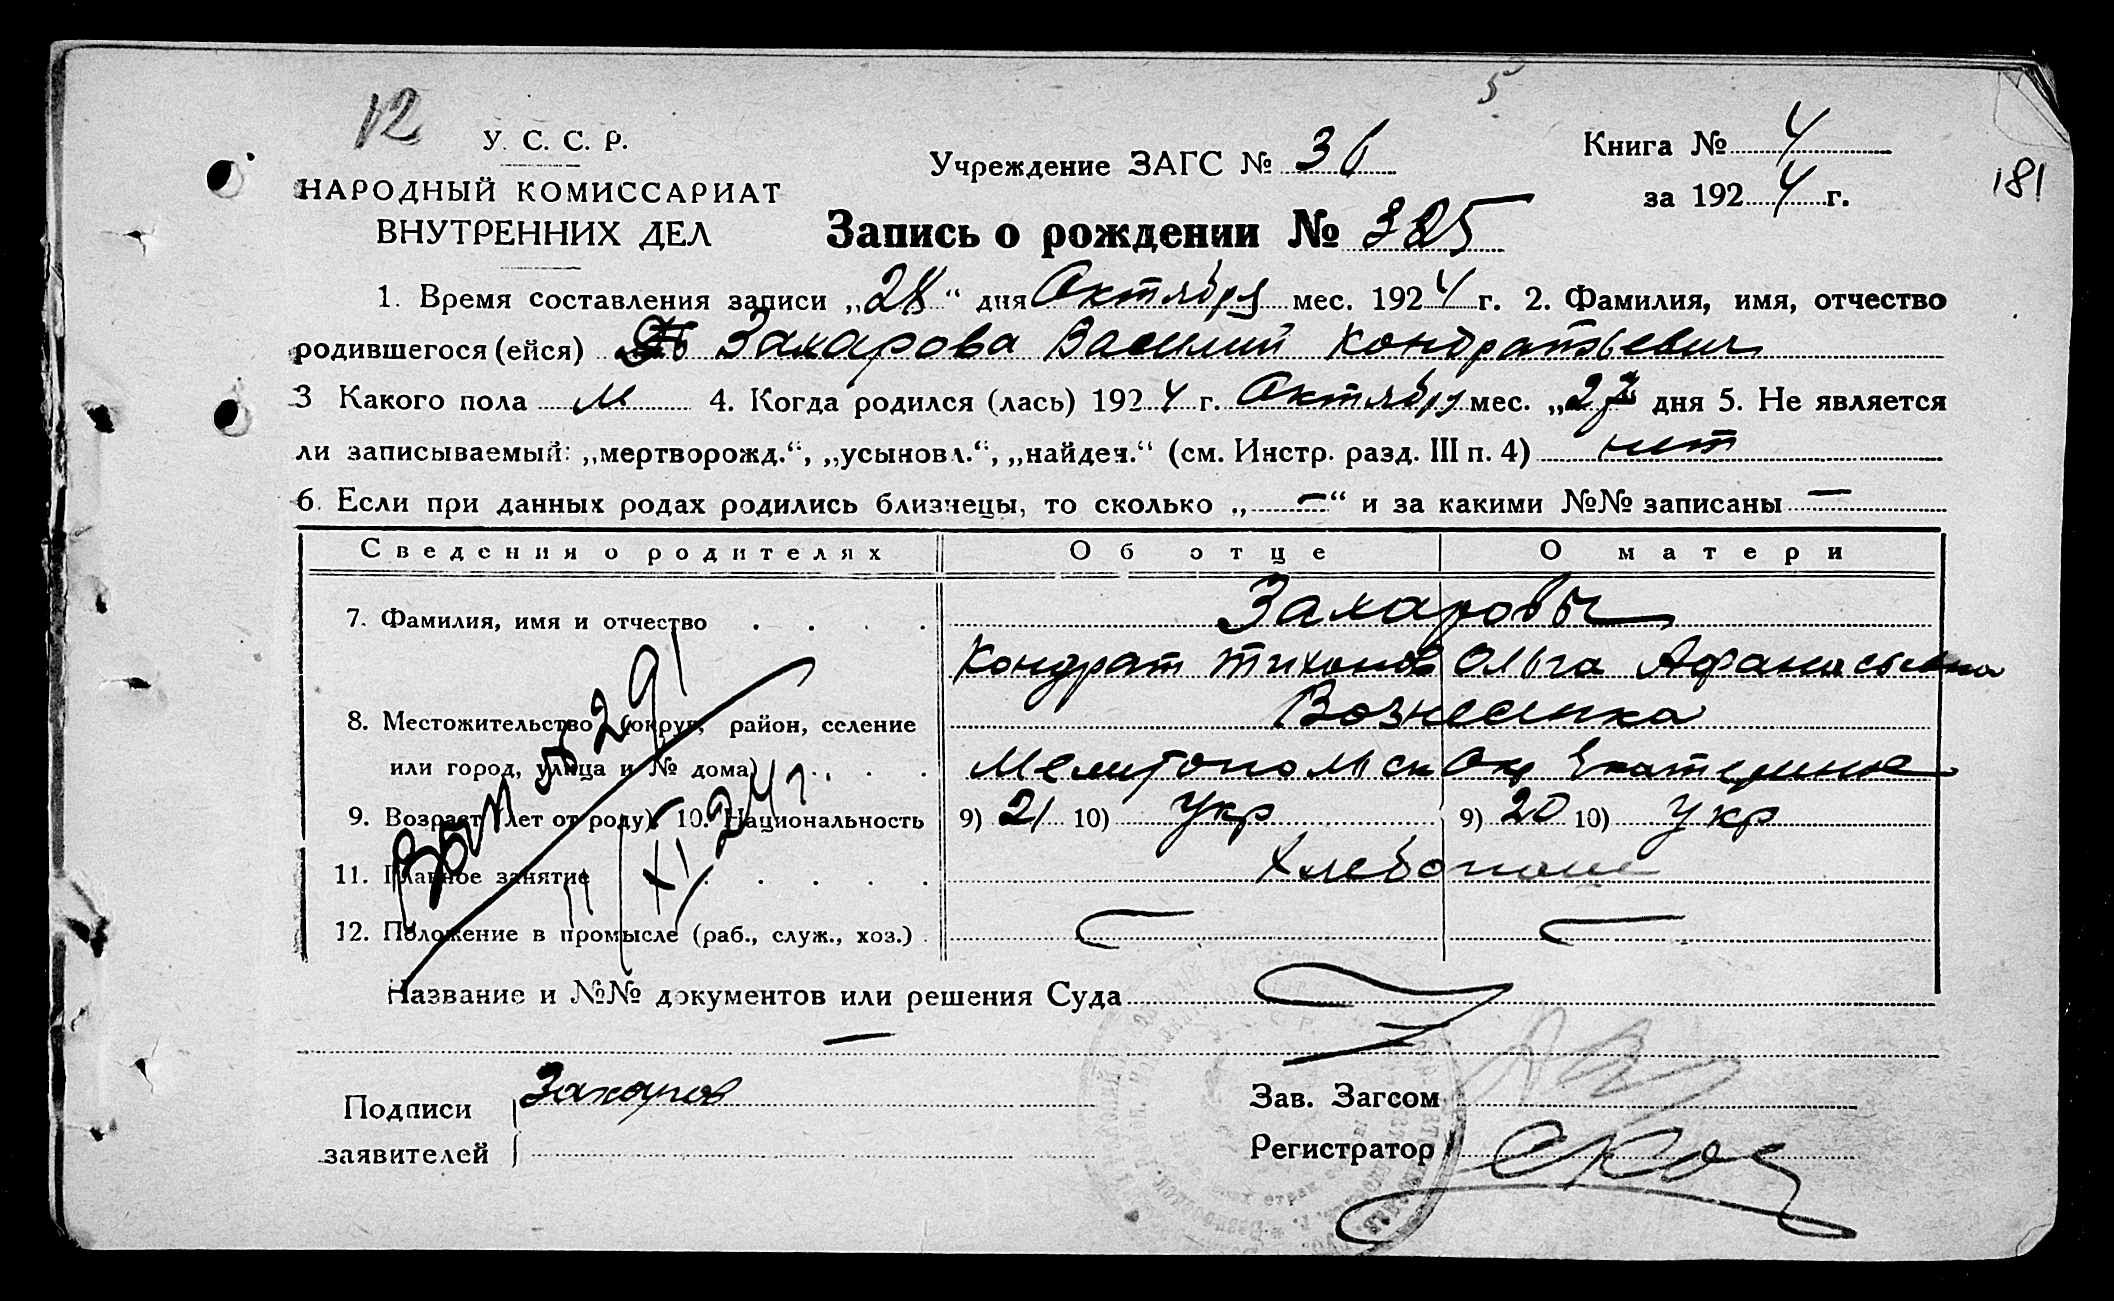 12
5
У. С. С. Р.
НАРОДНЫЙ КОМИССАРИАТ
ВНУТРЕННИХ ДЕЛ
Учреждение ЗАГС № 36
Книга № 4
за 1924 г.
181
Запись о рождении № 325
1. Время составления записи „28“ дня Октября мес. 1924 г. 2. Фамилия, имя, отчество
родившегося (ейся) Захарова Василий Кондратьевич
3 Какого пола м 4. Когда родился (лась) 1924 г. Октября мес. „27 дня 5. Не является
ли записываемый: „мертворожд.“, „усыновл.“, „найден.“ (см. Инстр. разд. III п. 4) нет
6. Если при данных родах родились близнецы, то сколько „—“ и за какими №№ записаны —
Сведения о родителях Об отце О матери
Захаровы
7. Фамилия, имя и отчество
Кондрат Тихонов Ольга Афанасьевна
Вознесенка
8. Местожительство (округ, район, селение
или город, улица и № дома) Мелитопольск Окр Екатеринос
9. Возраст (лет от роду). 10. Национальность 9) 21 10) Укр 9) 20 10) Укр
11. Главное занятие Хлебопаше
12. Положение в промысле (раб., служ., хоз.) — —
291
11/XI 24 г.
Название и №№ документов или решения Суда
—
Подписи
заявителей
Захаров
Зав. Загсом
Регистратор